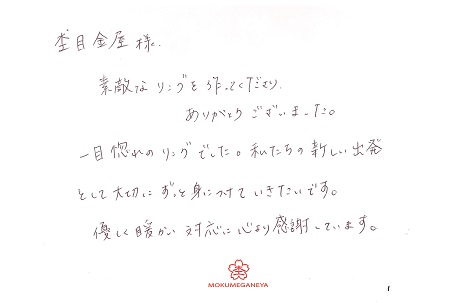 杢目金屋 様.
素敵な リングを 作ってくださり.
ありがとう ございました。
一目惚れの リングでした。私たちの 新しい 出発
として 大切に ずっと 身につけて いきたいです。
優しく 暖かい 対応に 心より 感謝しています。
MOKUMEGANEYA